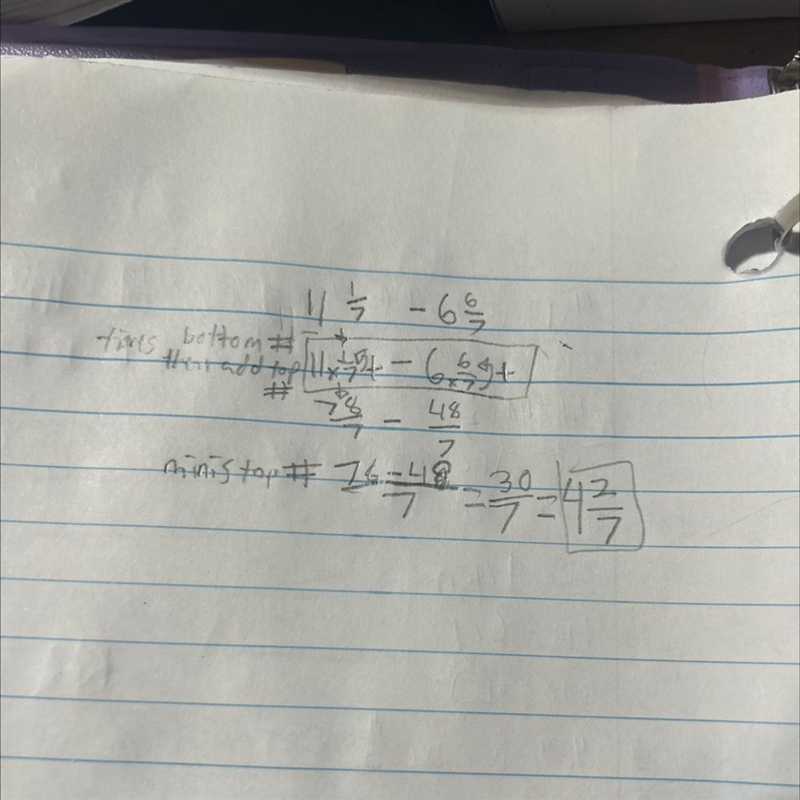 11 1/7 - 6 6/7
times bottom #
then add top 11 x 1/7 + - 6 x 6/7 +
#
78/7 - 48/7
minis top # 76 - 48/7 = 30/7 = 4 2/7